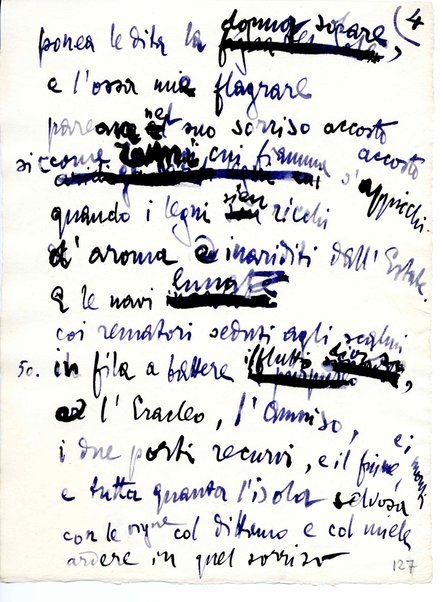 4
ponea le dita la donna solare,
e l'ossa mie flagrare
pareano nel suo sorriso accosto
siccome rami cui fiamma accosto
s'appicchi
quando i legni sien ricchi
d'aroma e inariditi dall'Estate.
E le navi lunate
coi rematori seduti agli scalmi
50. in fila a battere il flutto,
e l'Eracleo, l'Amniso,
i due porti recurvi, e il fiume, e i monti
e tutta quanta l'isola selvosa
con le vigne col dittamo e col miele
ardere in quel sorriso
127